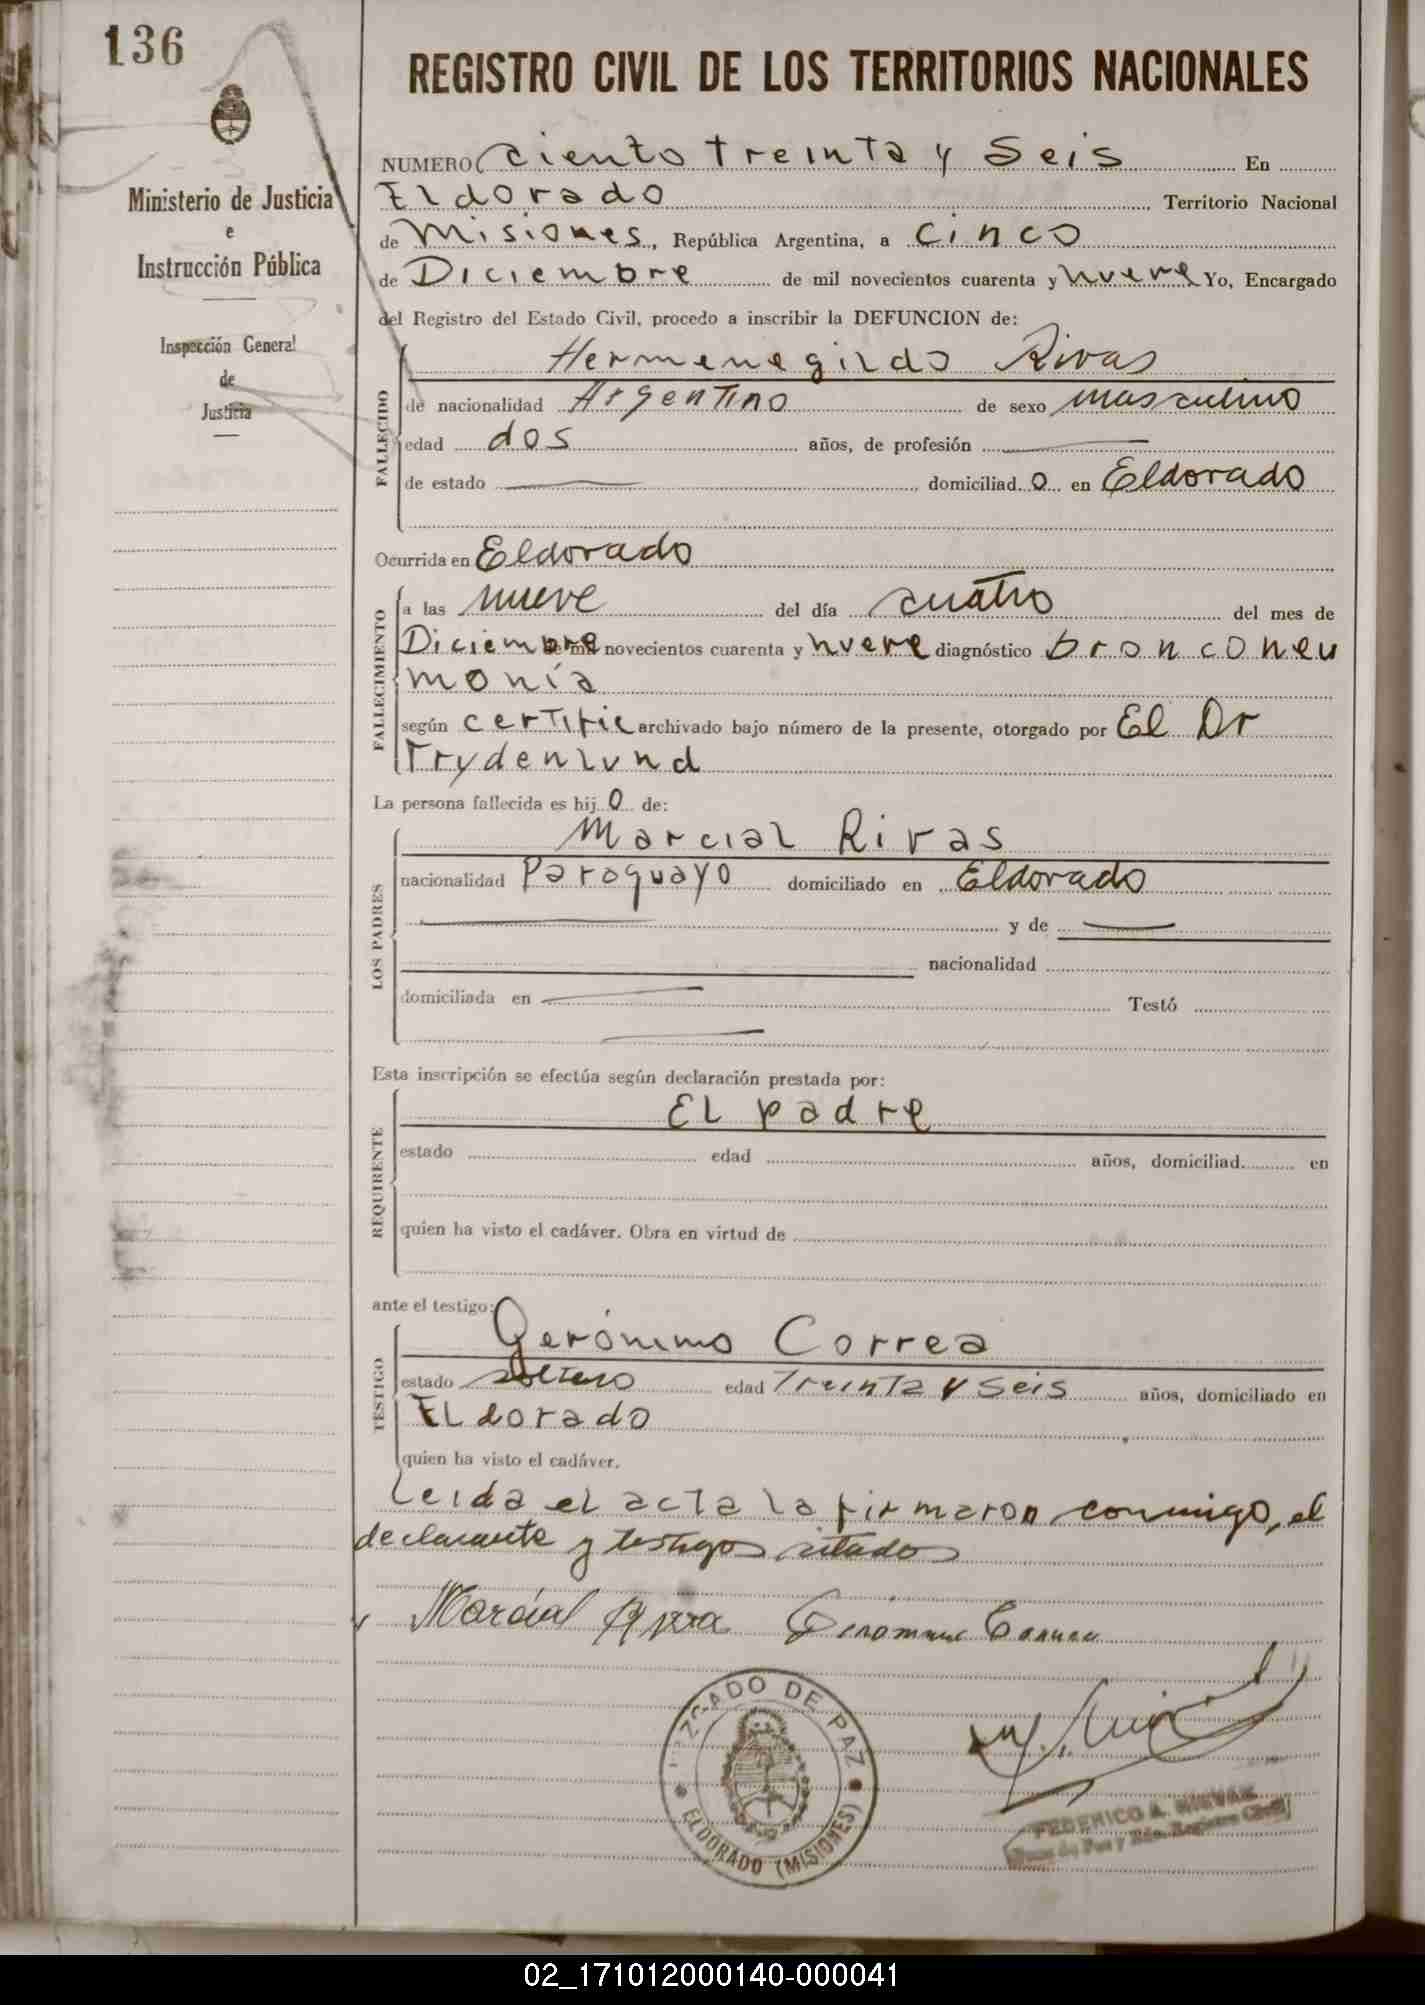 136
REGISTRO CIVIL DE LOS TERRITORIOS NACIONALES
Ministerio de Justicia
e
Instrucción Pública
Inspección General
de
Justicia
NUMERO ciento treinta y seis En
Eldorado Territorio Nacional
de Misiones, República Argentina, a cinco
de Diciembre de mil novecientos cuarenta y nueve Yo, Encargado
del Registro del Estado Civil, procedo a inscribir la DEFUNCION de:
FALLECIDO
Hermenegildo Rivas
de nacionalidad Argentino de sexo masculino
edad dos años, de profesión
de estado domiciliado en Eldorado
Ocurrida en Eldorado
FALLECIMIENTO
a las nueve del día cuatro del mes de
Diciembre de mil novecientos cuarenta y nueve diagnóstico bronconeu
monía
según certific archivado bajo número de la presente, otorgado por El Dr
Frydenlund
La persona fallecida es hijo de:
LOS PADRES
Marcial Rivas
nacionalidad Paraguayo domiciliado en Eldorado
y de
nacionalidad
domiciliada en Testó
Esta inscripción se efectúa según declaración prestada por:
REQUIRENTE
El padre
estado edad años, domiciliad en
quien ha visto el cadáver. Obra en virtud de
ante el testigo:
TESTIGO
Gerónimo Correa
estado soltero edad treinta y seis años, domiciliado en
Eldorado
quien ha visto el cadáver.
Leida el acta la firmaron conmigo, el
declarante y testigos citados
Marcial
JUZGADO DE PAZ
ELDORADO (MISIONES)
FEDERICO A.
02_171012000140-000041